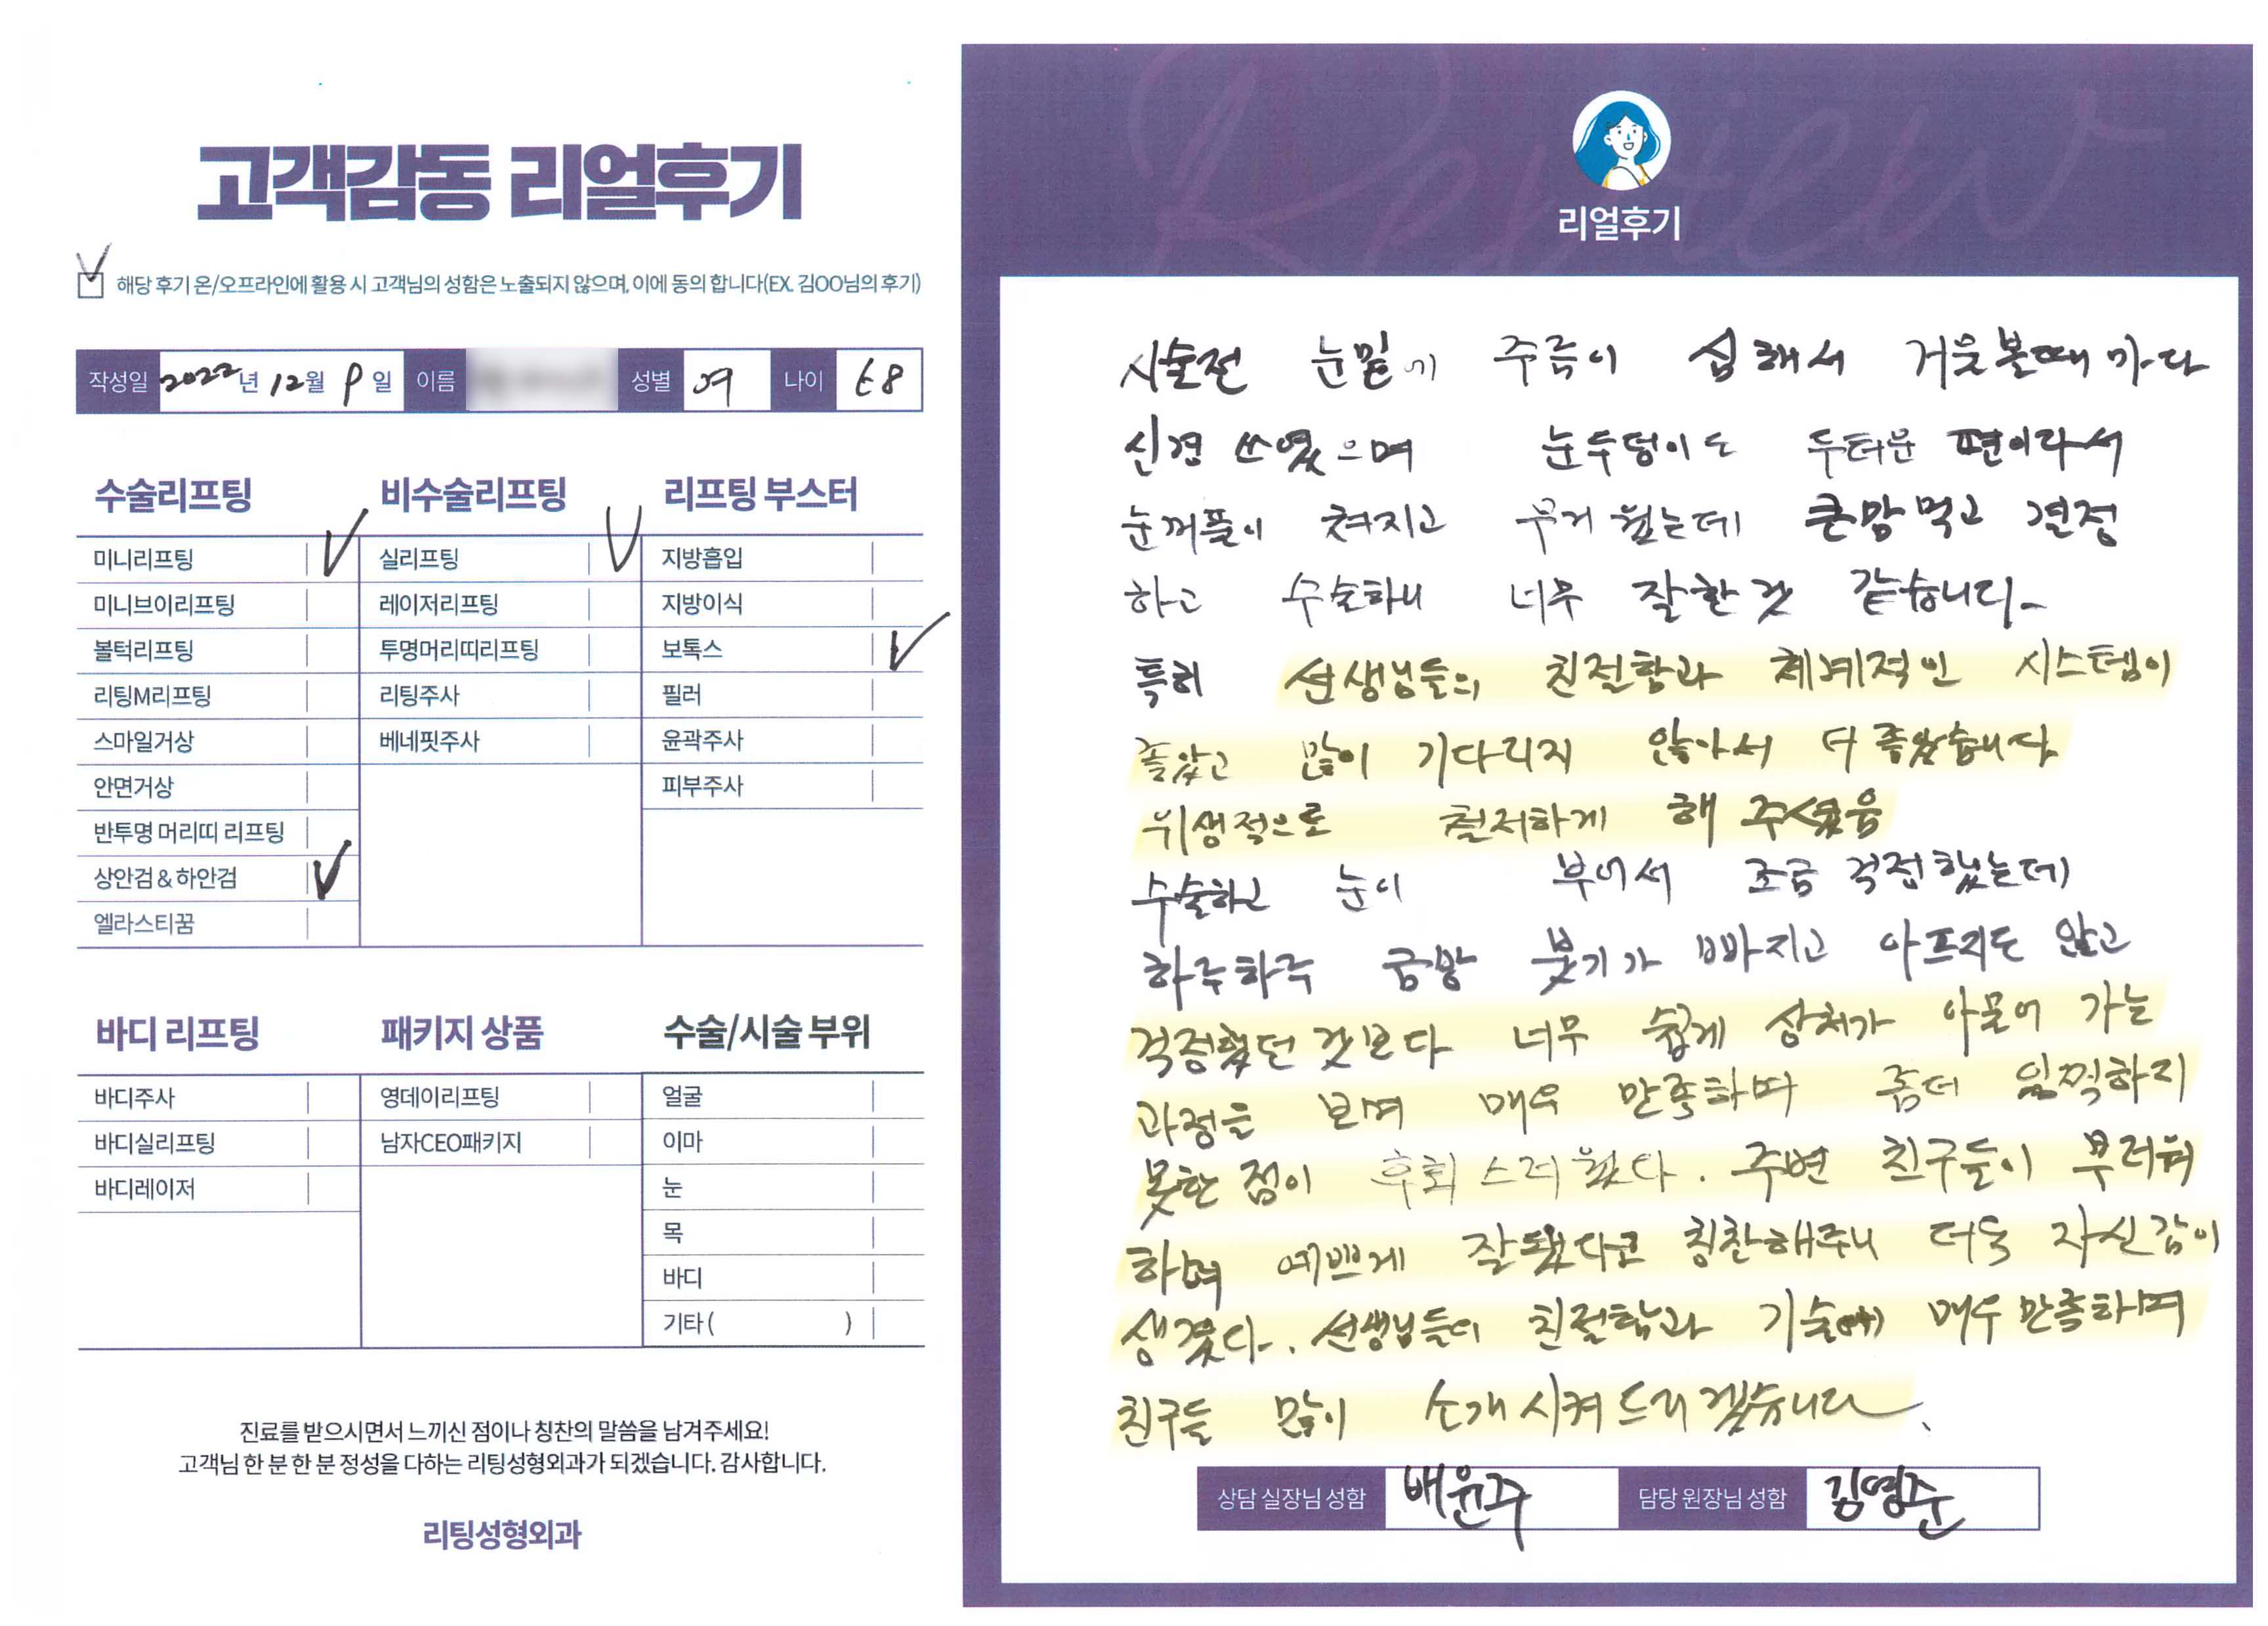 고객감동 리얼후기
해당 후기 온/오프라인에 활용 시 고객님의 성함은 노출되지 않으며, 이에 동의 합니다(EX. 김OO님의 후기)
작성일 2022년 12월 9일 이름 성별 여 나이 68
수술리프팅
미니리프팅
미니브이리프팅
볼턱리프팅
리팅M리프팅
스마일거상
안면거상
반투명 머리띠 리프팅
상안검 & 하안검
엘라스티꿈
비수술리프팅
실리프팅
레이저리프팅
투명머리띠리프팅
리팅주사
베네핏주사
리프팅 부스터
지방흡입
지방이식
보톡스
필러
윤곽주사
피부주사
바디 리프팅
바디주사
바디실리프팅
바디레이저
패키지 상품
영데이리프팅
남자CEO패키지
수술/시술 부위
얼굴
이마
눈
목
바디
기타 ( )
진료를 받으시면서 느끼신 점이나 칭찬의 말씀을 남겨주세요!
고객님 한 분 한 분 정성을 다하는 리팅성형외과가 되겠습니다. 감사합니다.
리팅성형외과
Review
리얼후기
시술전 눈밑에 주름이 심해서 거울볼때마다
신경 쓰였으며 눈두덩이도 두터운 편이라서
눈꺼플이 쳐지고 무거웠는데 큰맘먹고 결정
하고 수술하니 너무 잘한것 같습니다.
특히 선생님들의 친절함과 체계적인 시스템이
좋았고 많이 기다리지 않아서 더 좋았습니다
위생적으로 철저하게 해 주셨음
수술하고 눈이 부어서 조금 걱정했는데
하루하루 금방 붓기가 빠지고 아프지도 않고
걱정했던 것보다 너무 쉽게 상처가 아물어 가는
과정을 보며 매우 만족하며 좀더 일찍하지
못한 점이 후회스러웠다. 주변 친구들이 부러워
하며 예쁘게 잘됐다고 칭찬해주니 더욱 자신감이
생겼다. 선생님들의 친절함과 기술에 매우 만족하며
친구들 많이 소개시켜 드리겠습니다.
상담 실장님 성함 배윤주 담당 원장님 성함 김영준